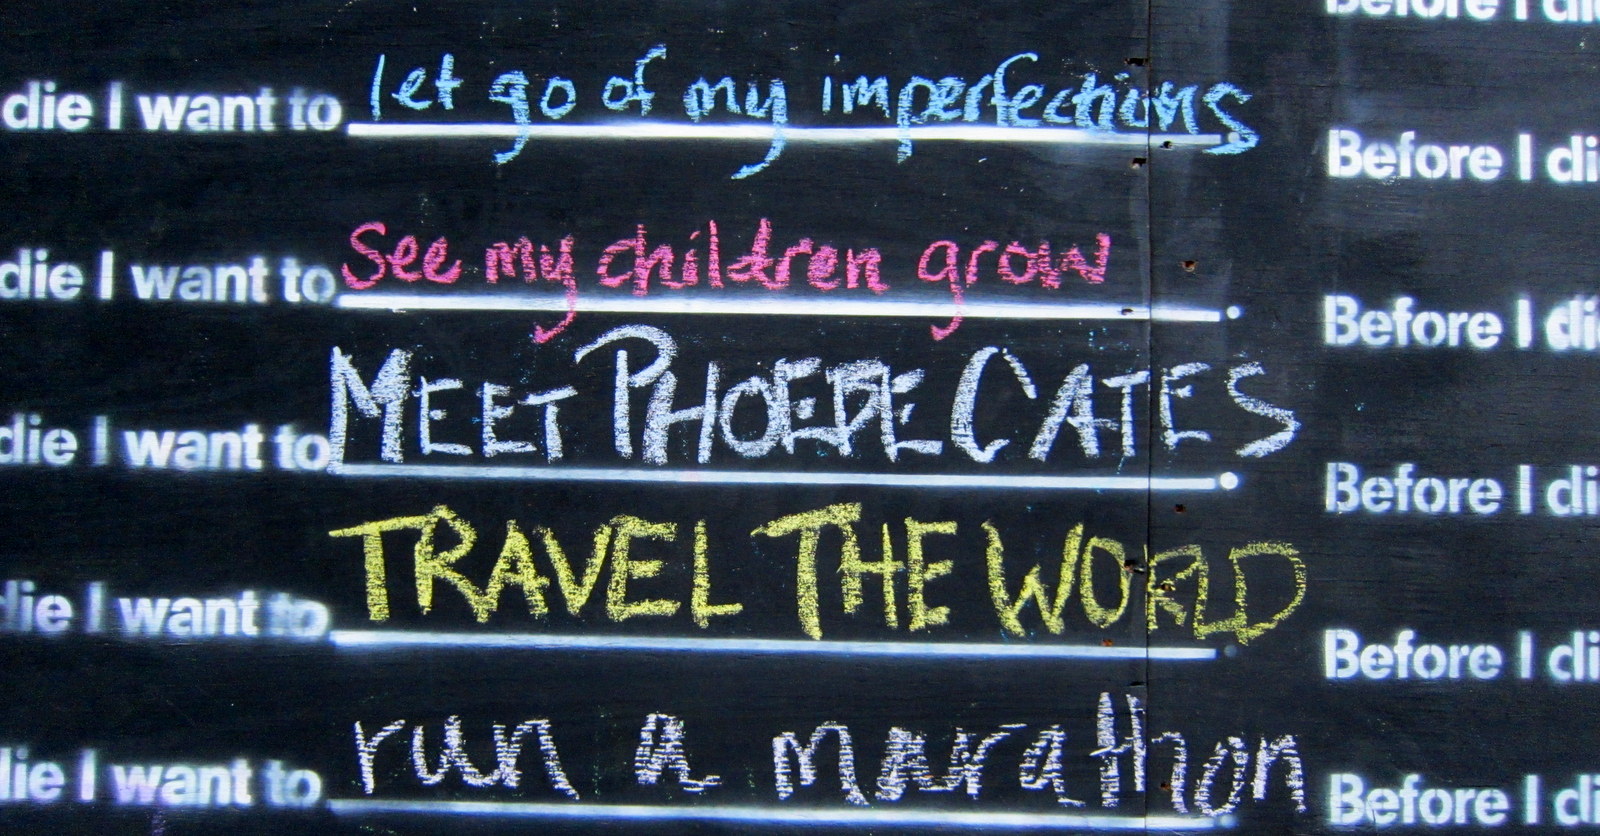 Before I di
die I want to let go of my imperfections
Before I di
die I want to see my children grow
Before I di
die I want to MEET PHOEBE CATES
Before I di
die I want to TRAVEL THE WORLD
Before I di
die I want to run a marathon
Before I di